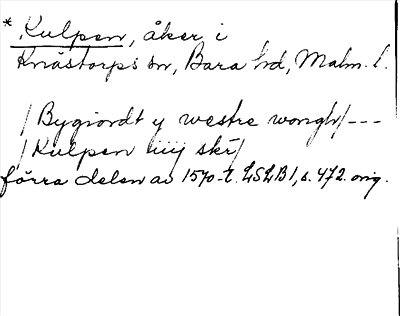 * Kulpen, åker i
Knästorps sn, Bara hd, Malm. l.
/Bygiordt y westre wongh/---
/Kulpen iiij skr/
förra delen av 1570-t. LSLB1, s. 472. orig.